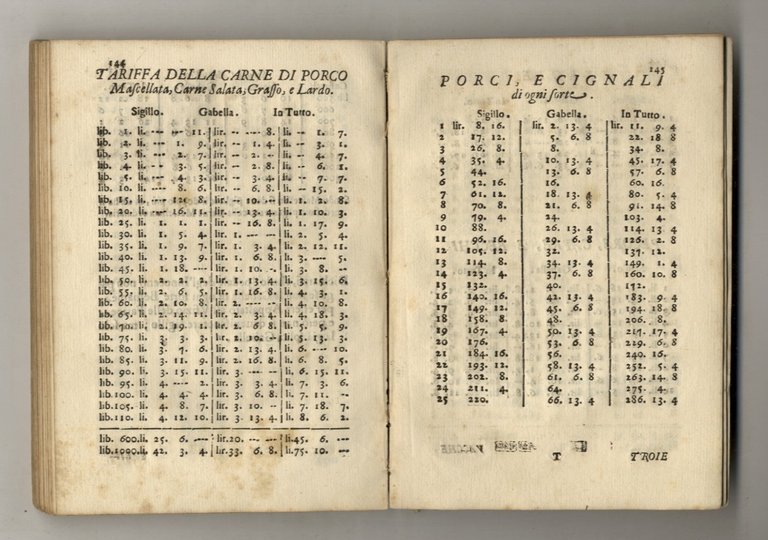 144
TARIFFA DELLA CARNE DI PORCO
Mascellata, Carne Salata, Grasso, e Lardo.
Sigillo. Gabella. In Tutto.
lib. 1. li. --- --- 11. lir. -- --- 8. li. -- 1. 7.
lib. 2. li. --- 1. 9. lir. -- 1. 4. li. -- 3. 1.
lib. 3. li. --- 2. 7. lir. -- 2. -- li. -- 4. 7.
lib. 4. li. --- 3. 5. lir. -- 2. 8. li. -- 6. 1.
lib. 5. li. --- 4. 3. lir. -- 3. 4. li. -- 7. 7.
lib. 10. li. --- 8. 6. lir. -- 6. 8. li. -- 15. 2.
lib. 15. li. --- 12. 8. lir. -- 10. -- li. 1. 2. 8.
lib. 20. li. --- 16. 11. lir. -- 13. 4. li. 1. 10. 3.
lib. 25. li. 1. 1. 1. lir. -- 16. 8. li. 1. 17. 9.
lib. 30. li. 1. 5. 4. lir. 1. --- -- li. 2. 5. 4.
lib. 35. li. 1. 9. 7. lir. 1. 3. 4. li. 2. 12. 11.
lib. 40. li. 1. 13. 9. lir. 1. 6. 8. li. 3. --- 5.
lib. 45. li. 1. 18. --- lir. 1. 10. -- li. 3. 8. --
lib. 50. li. 2. 2. 2. lir. 1. 13. 4. li. 3. 15. 6.
lib. 55. li. 2. 6. 5. lir. 1. 16. 8. li. 4. 3. 1.
lib. 60. li. 2. 10. 8. lir. 2. --- -- li. 4. 10. 8.
lib. 65. li. 2. 14. 11. lir. 2. 3. 4. li. 4. 18. 3.
lib. 70. li. 2. 19. 1. lir. 2. 6. 8. li. 5. 5. 9.
lib. 75. li. 3. 3. 3. lir. 2. 10. -- li. 5. 13. 3.
lib. 80. li. 3. 7. 6. lir. 2. 13. 4. li. 6. --- 10.
lib. 85. li. 3. 11. 9. lir. 2. 16. 8. li. 6. 8. 5.
lib. 90. li. 3. 15. 11. lir. 3. --- -- li. 6. 15. 11.
lib. 95. li. 4. --- 2. lir. 3. 3. 4. li. 7. 3. 6.
lib. 100. li. 4. 4. 4. lir. 3. 6. 8. li. 7. 11. --
lib. 105. li. 4. 8. 7. lir. 3. 10. -- li. 7. 18. 7.
lib. 110. li. 4. 12. 10. lir. 3. 13. 4. li. 8. 6. 2.
lib. 600. li. 25. 6. --- lir. 20. --- -- li. 45. 6. --
lib. 1000. li. 42. 3. 4. lir. 33. 6. 8. li. 75. 10. --
145
PORCI, E CIGNALI
di ogni sorte.
Sigillo. Gabella. In Tutto.
1 lir. 8. 16. lir. 2. 13. 4 lir. 11. 9. 4
2 17. 12. 5. 6. 8 22. 18 8
3 26. 8. 8. 34. 8.
4 35. 4. 10. 13. 4 45. 17. 4
5 44. 13. 6. 8 57. 6. 8
6 52. 16. 16. 60. 16.
7 61. 12. 18. 13. 4 80. 5. 4
8 70. 8. 21. 6. 8 91. 14. 8
9 79. 4. 24. 103. 4.
10 88. 26. 13. 4 114. 13. 4
11 96. 16. 29. 6. 8 126. 2. 8
12 105. 12. 32. 137. 12.
13 114. 8. 34. 13. 4 149. 1. 4
14 123. 4. 37. 6. 8 160. 10. 8
15 132. 40. 172.
16 140. 16. 42. 13. 4 183. 9. 4
17 149. 12. 45. 6. 8 194. 18. 8
18 158. 8. 48. 206. 8.
19 167. 4. 50. 13. 4 217. 17. 4
20 176. 53. 6. 8 229. 6. 8
21 184. 16. 56. 240. 16.
22 193. 12. 58. 13. 4 252. 5. 4
23 202. 8. 61. 6. 8 263. 14. 8
24 211. 4. 64. 275. 4.
25 220. 66. 13. 4 286. 13. 4
T TROIE